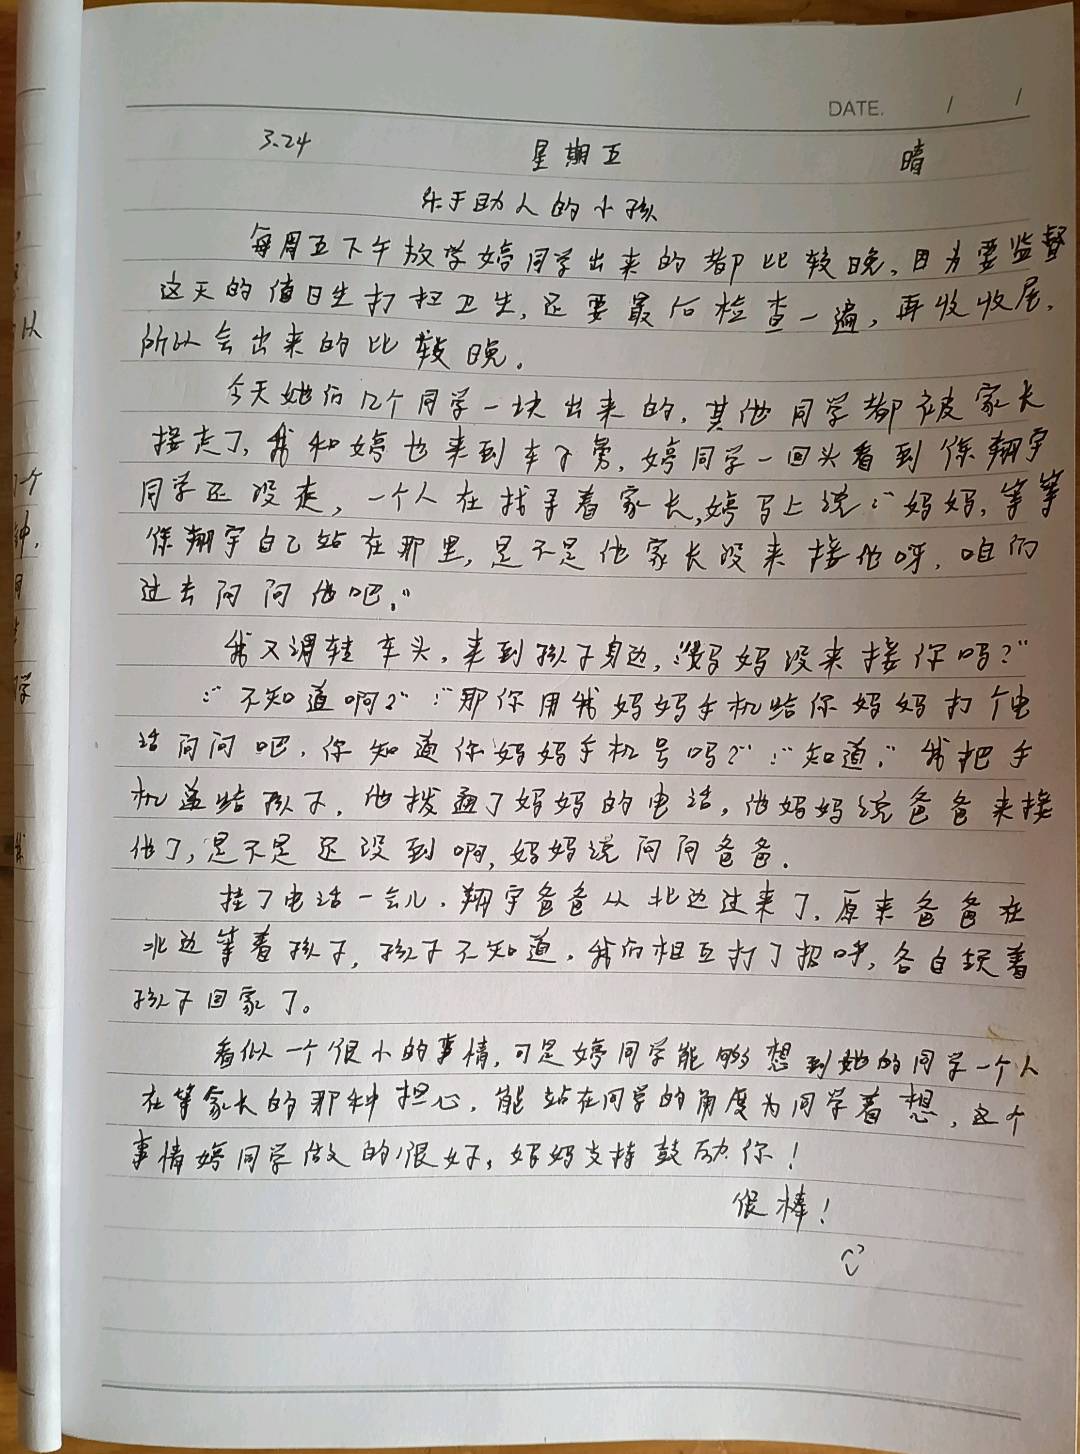 DATE.    /    /
3.24    星期五    晴
乐于助人的小孩
每周五下午放学婷同学出来的都比较晚,因为要监督
这天的值日生打扫卫生,还要最后检查一遍,再收收尾,
所以会出来的比较晚。
今天她们几个同学一块出来的,其他同学都被家长
接走了,我和婷也来到车子旁,婷同学一回头看到徐翔宇
同学还没走,一个人在找寻着家长,婷马上说:“妈妈,等等
徐翔宇自己站在那里,是不是他家长没来接他呀,咱们
过去问问他吧。”
我又调转车头,来到孩子身边,“妈妈没来接你吗?”
:“不知道啊?”:“那你用我妈妈手机给你妈妈打个电
话问问吧,你知道你妈妈手机号吗?”:“知道。”我把手
机递给孩子,他拨通了妈妈的电话,他妈妈说爸爸来接
他了,是不是还没到啊,妈妈说问问爸爸.
挂了电话一会儿,翔宇爸爸从北边过来了,原来爸爸在
北边等着孩子,孩子不知道,我们相互打了招呼,各自领着
孩子回家了。
看似一个很小的事情,可是婷同学能够想到她的同学一个人
在等家长的那种担心,能站在同学的角度为同学着想,这个
事情婷同学做的很好,妈妈支持鼓励你!
很棒!